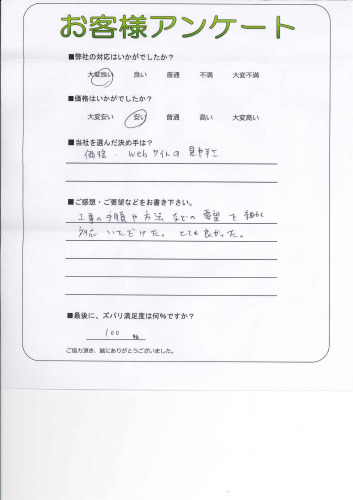 お客様アンケート
■弊社の対応はいかがでしたか？
大変良い 良い 普通 不満 大変不満
■価格はいかがでしたか？
大変安い 安い 普通 高い 大変高い
■当社を選んだ決め手は？
価格、Webサイトの見やすさ
■ご感想・ご要望などをお書き下さい。
工事の手順や方法などの要望を細かく
対応いただけた。とても良かった。
■最後に、ズバリ満足度は何%ですか？
100 %
ご協力頂き、誠にありがとうございました。